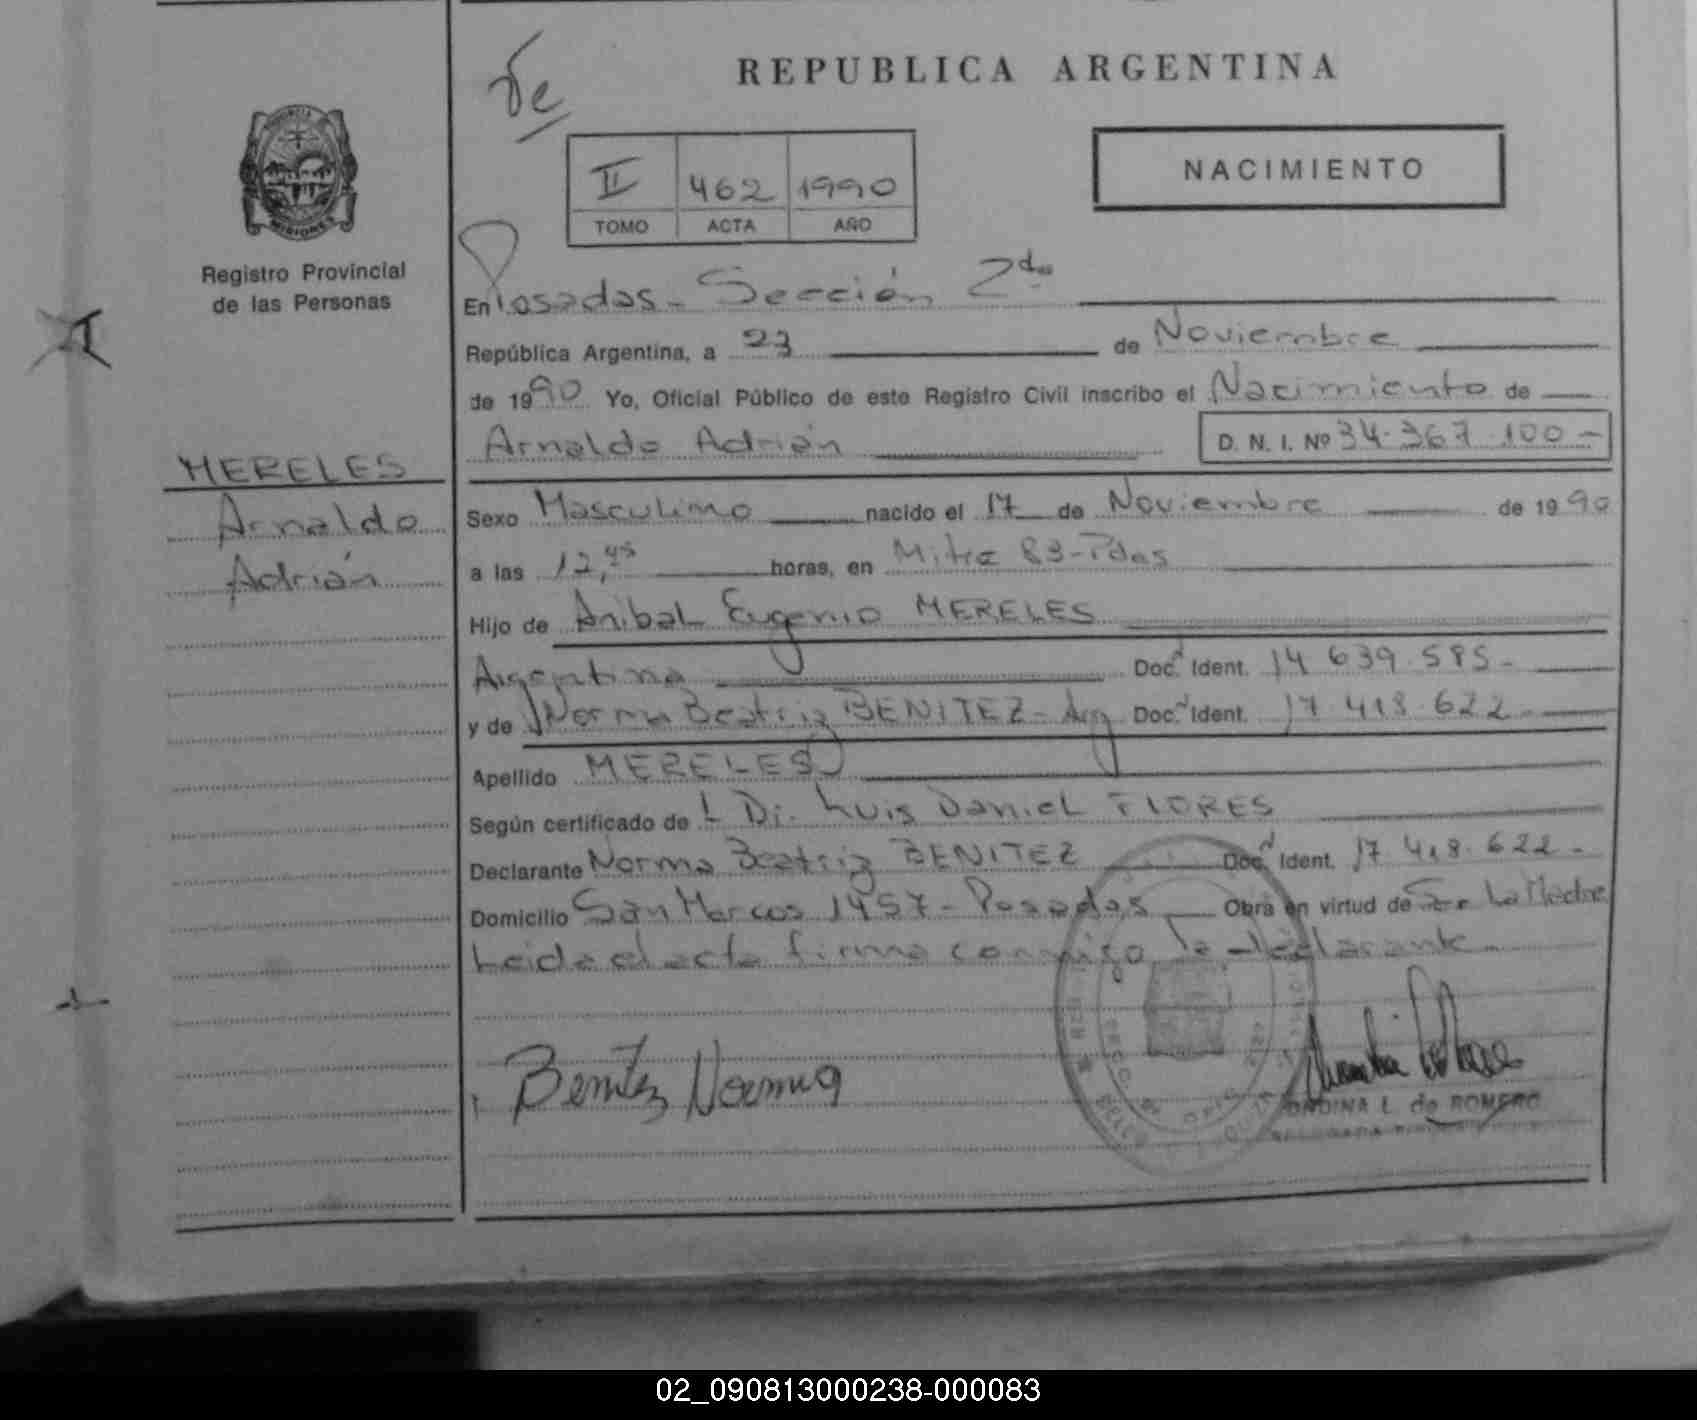 REPUBLICA ARGENTINA
NACIMIENTO
II 462 1990
TOMO ACTA AÑO
Registro Provincial
de las Personas
MERELES
Arnaldo
Adrián
En Posadas - Sección 2da
República Argentina, a 23 de Noviembre
de 1990 Yo, Oficial Público de este Registro Civil inscribo el Nacimiento de
Arnaldo Adrián D. N. I. Nº 34.367.100-
Sexo Masculino nacido el 17 de Noviembre de 1990
a las 12,45 horas, en Mitre 83-Pdas
Hijo de Anibal Eugenio MERELES
Argentina Doc. Ident. 14 639.585-
y de Norma Beatriz BENITEZ - Arg Doc. Ident. 17 418.622-
Apellido MERELES
Según certificado de L Dr. Luis Daniel FLORES
Declarante Norma Beatriz BENITEZ Doc. Ident. 17 418.622-
Domicilio San Marcos 1457 - Posadas Obra en virtud de Ser La Madre
Leida el acta firma conmigo la declarante
Benitez Norma
ONDINA L. de ROMERO
02_090813000238-000083